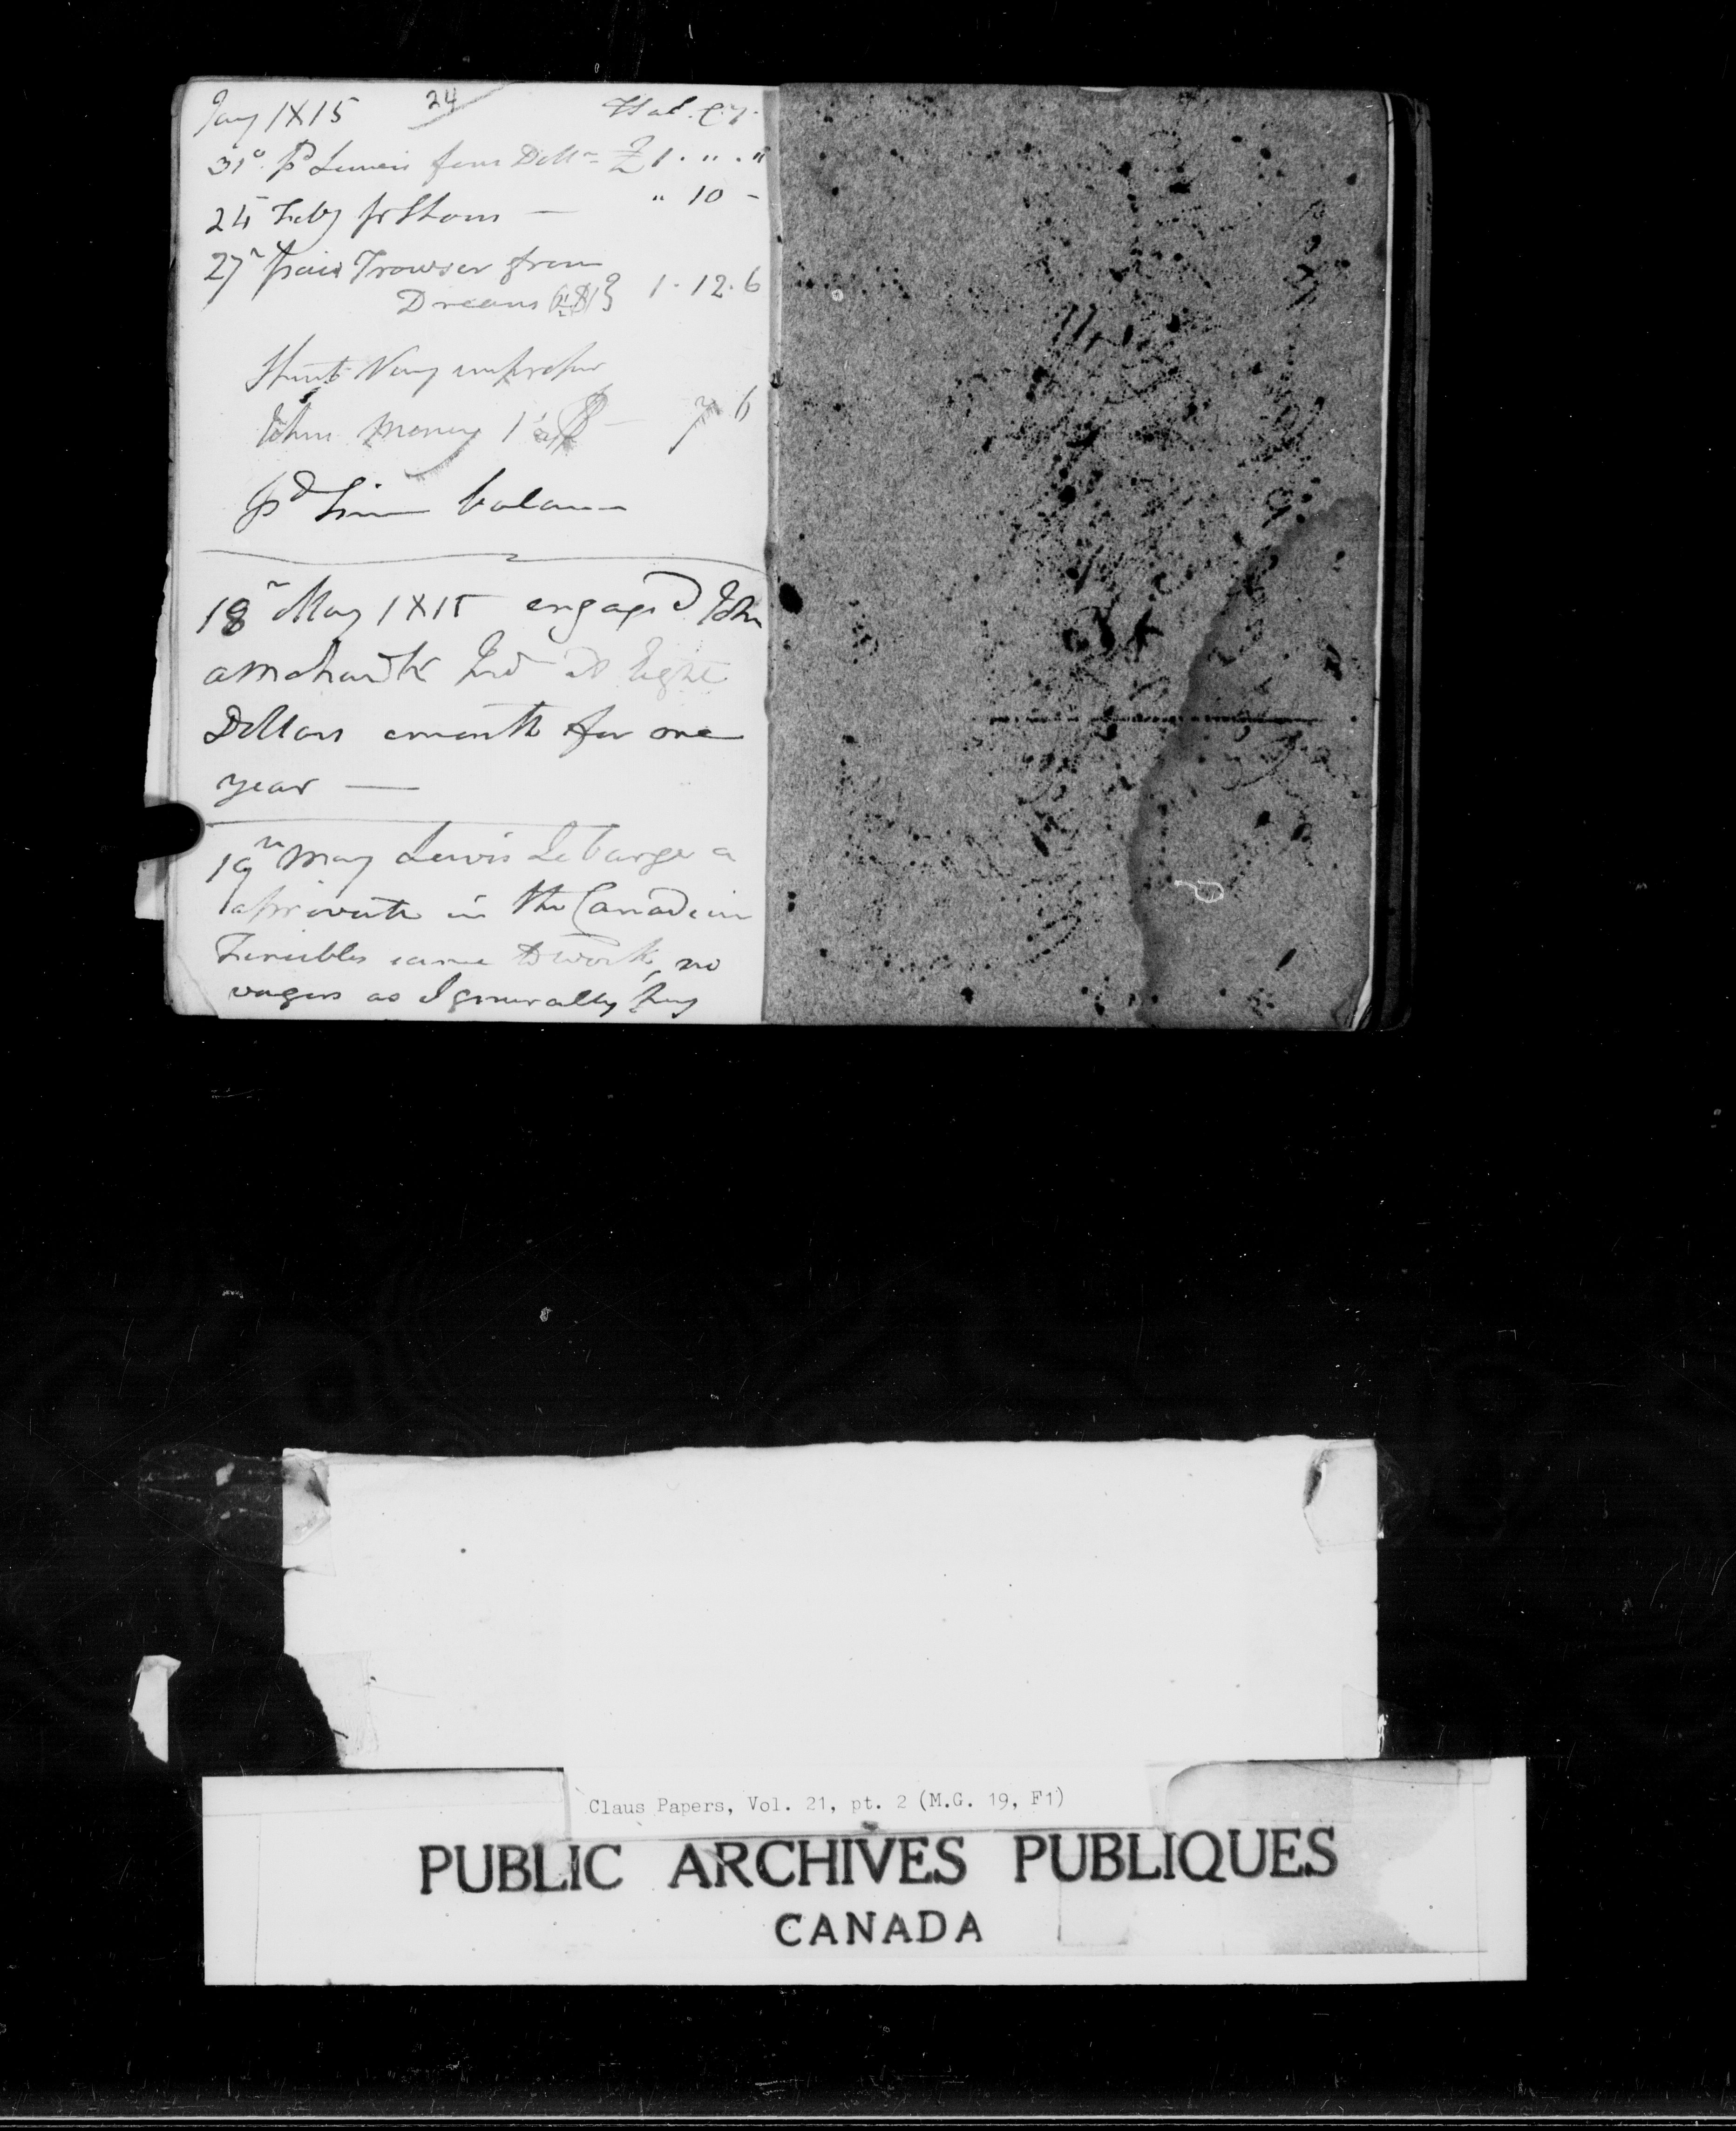 Jany 1815 24 Hal. Cy.
31st pd Lewis four Dollrs £ 1 . " . "
25 Feby pr Shoes — " 10 -
27th pair Trowser from
Dreans 1 . 12 . 6
Very improper
John money 1 7 6
pd him balance
18th May 1815 engaged John
a Mohawk Ind at Eight
Dollars a month for one
year —
19th May Lewis Lebarge a
a private in the Canadian
Fencibles came to work, no
wages as I generally pay
Claus Papers, Vol. 21, pt. 2 (M.G. 19, F1)
PUBLIC ARCHIVES PUBLIQUES
CANADA